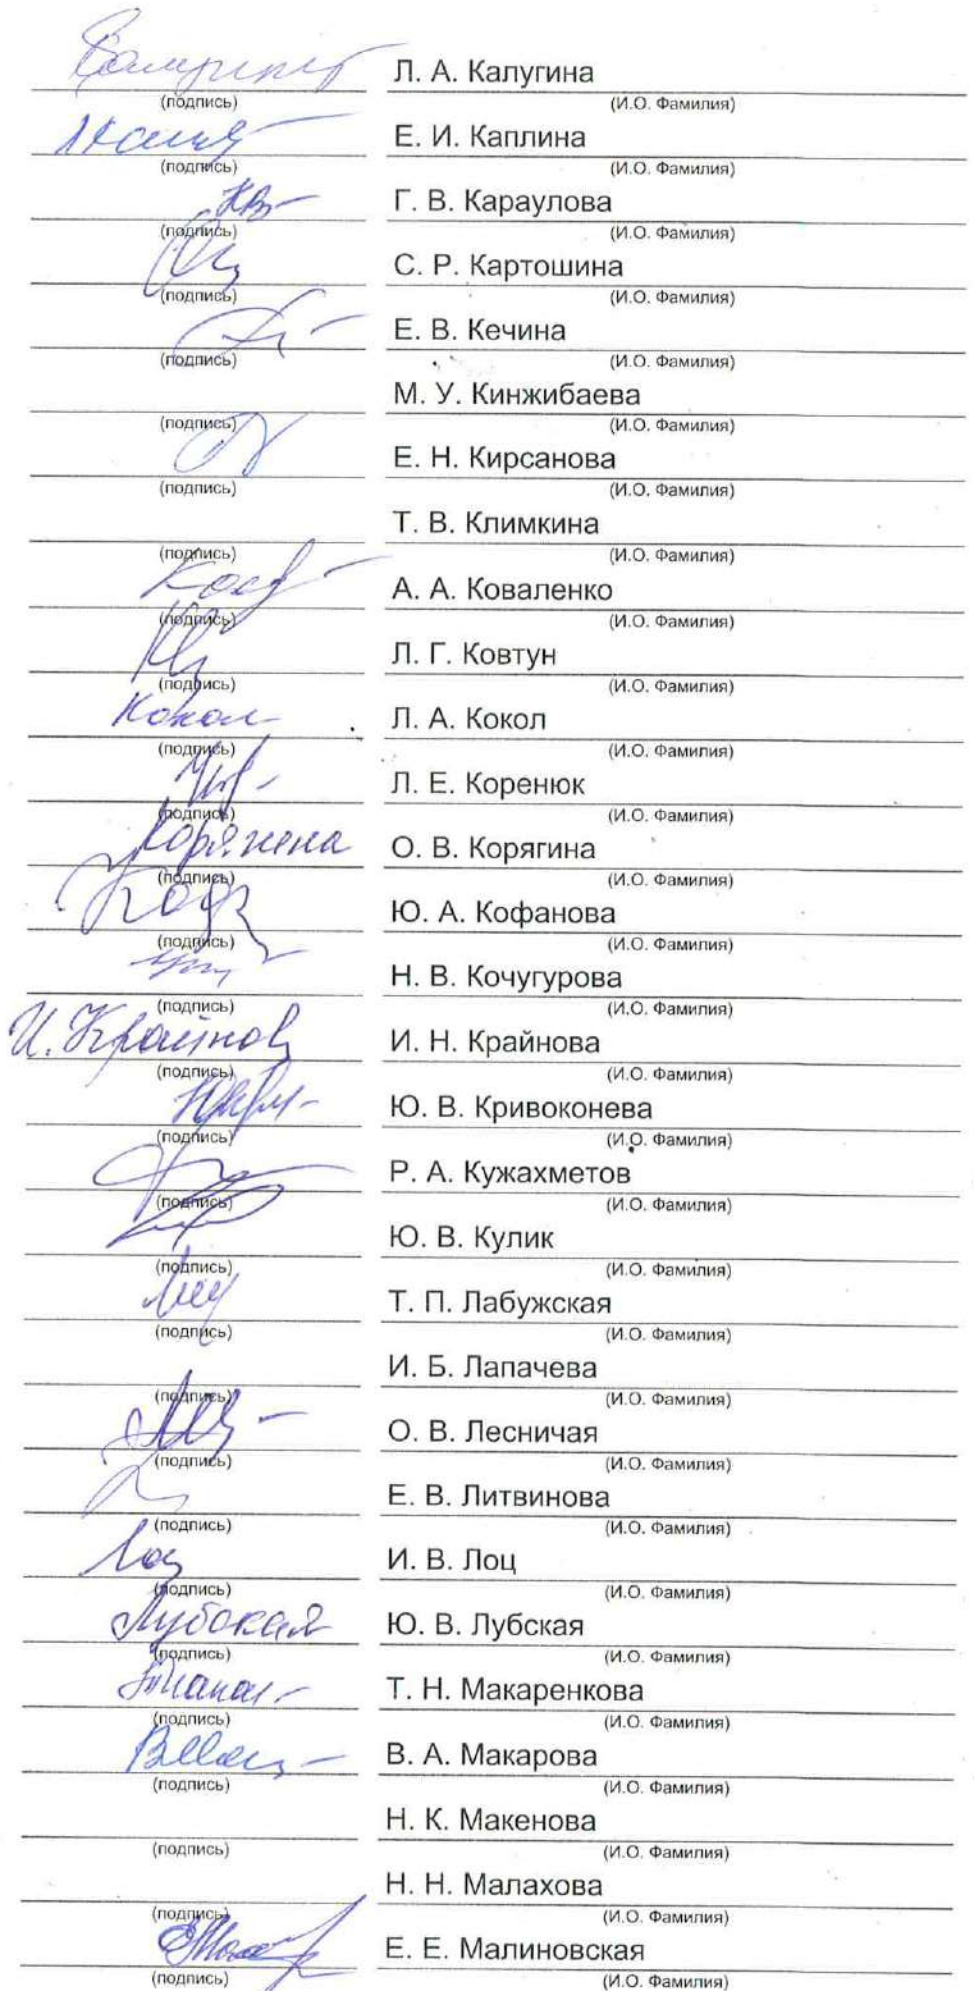 Л. А. Калугина
(подпись) (И.О. Фамилия)
Е. И. Каплина
(подпись) (И.О. Фамилия)
Г. В. Караулова
(подпись) (И.О. Фамилия)
С. Р. Картошина
(подпись) (И.О. Фамилия)
Е. В. Кечина
(подпись) (И.О. Фамилия)
М. У. Кинжибаева
(подпись) (И.О. Фамилия)
Е. Н. Кирсанова
(подпись) (И.О. Фамилия)
Т. В. Климкина
(подпись) (И.О. Фамилия)
А. А. Коваленко
(подпись) (И.О. Фамилия)
Л. Г. Ковтун
(подпись) (И.О. Фамилия)
Кокол Л. А. Кокол
(подпись) (И.О. Фамилия)
Л. Е. Коренюк
(подпись) (И.О. Фамилия)
О. В. Корягина
(подпись) (И.О. Фамилия)
Ю. А. Кофанова
(подпись) (И.О. Фамилия)
Н. В. Кочугурова
(подпись) (И.О. Фамилия)
И. Н. Крайнова
(подпись) (И.О. Фамилия)
Ю. В. Кривоконева
(подпись) (И.О. Фамилия)
Р. А. Кужахметов
(подпись) (И.О. Фамилия)
Ю. В. Кулик
(подпись) (И.О. Фамилия)
Т. П. Лабужская
(подпись) (И.О. Фамилия)
И. Б. Лапачева
(подпись) (И.О. Фамилия)
О. В. Лесничая
(подпись) (И.О. Фамилия)
Е. В. Литвинова
(подпись) (И.О. Фамилия)
И. В. Лоц
(подпись) (И.О. Фамилия)
Лубская Ю. В. Лубская
(подпись) (И.О. Фамилия)
Т. Н. Макаренкова
(подпись) (И.О. Фамилия)
В. А. Макарова
(подпись) (И.О. Фамилия)
Н. К. Макенова
(подпись) (И.О. Фамилия)
Н. Н. Малахова
(подпись) (И.О. Фамилия)
Е. Е. Малиновская
(подпись) (И.О. Фамилия)